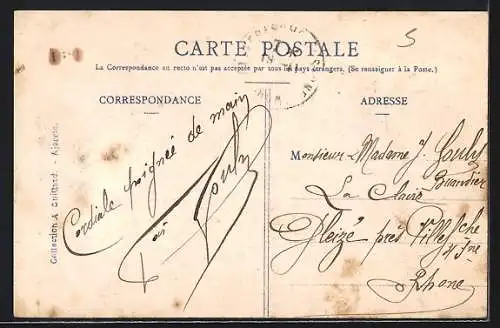 CARTE POSTALE
5
La Correspondance au recto n'est pas acceptée par tous les pays étrangers. (Se renseigner à la Poste.)
CORRESPONDANCE
Cordiale poignée de main
Collection A. Guittard. - Ajaccio.
ADRESSE
Monsieur Madame J. Gouly
La Claire
Gleizé près Villefche
s/ Sne
Rhône